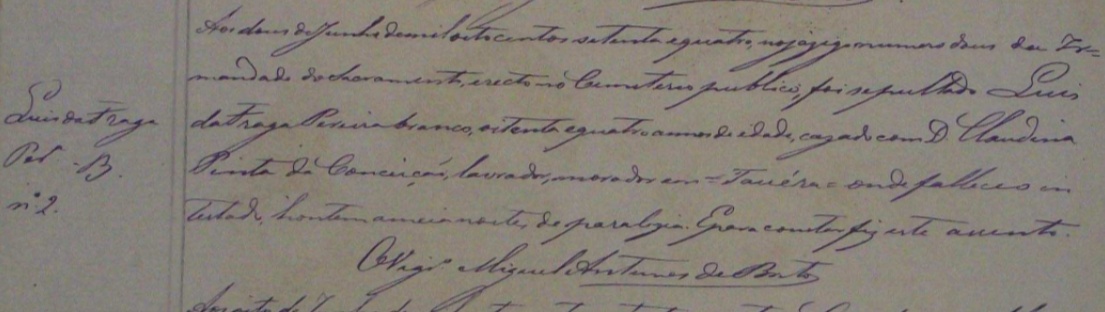 Aos dous de Junho de mil oito centos setenta e quatro, no jazigo numero dous da Ir=
mandade do Sacramento, erecto no Cemiterio publico, foi sepultado Luis
da Fraga Pereira branco, oitenta e quatro annos de idade, cazado com D. Claudina
Pinta da Conceição, lavrador, morador em = Tauéra = onde falleceo in
testado, hontem a meia noite, de paralezia. E para constar fiz este assento.
O Vigº Miguel Antunes de Brito
Luis da Fraga
Per.ª - B.
nº 2.